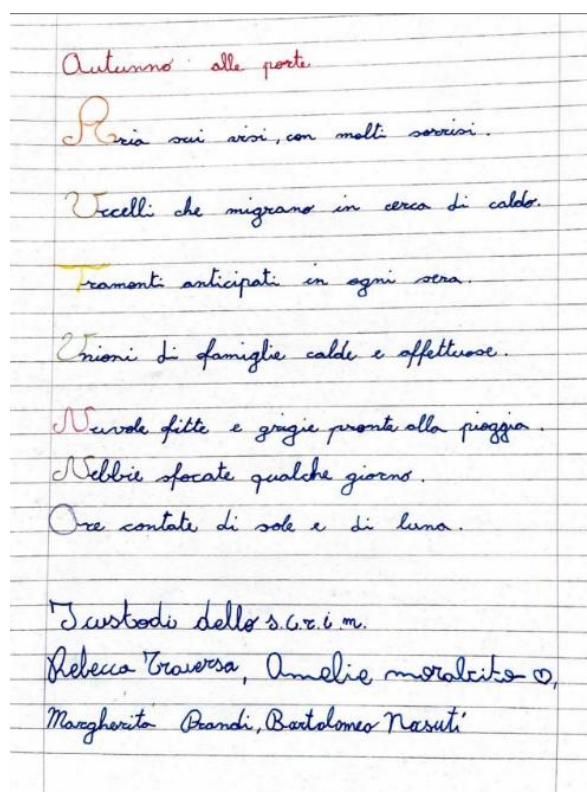 Autunno alle porte
Aria sui visi, con molti sorrisi.
Uccelli che migrano in cerca di caldo.
Tramonti anticipati in ogni sera.
Unioni di famiglie calde e affettuose.
Nuvole fitte e grigie pronte alla pioggia.
Nebbie sfocate qualche giorno.
Ore contate di sole e di luna.
I custodi dello s.c.r.i.m.
Rebecca Traversa, Amelie
Margherita Prandi, Bartolomeo Nasuti